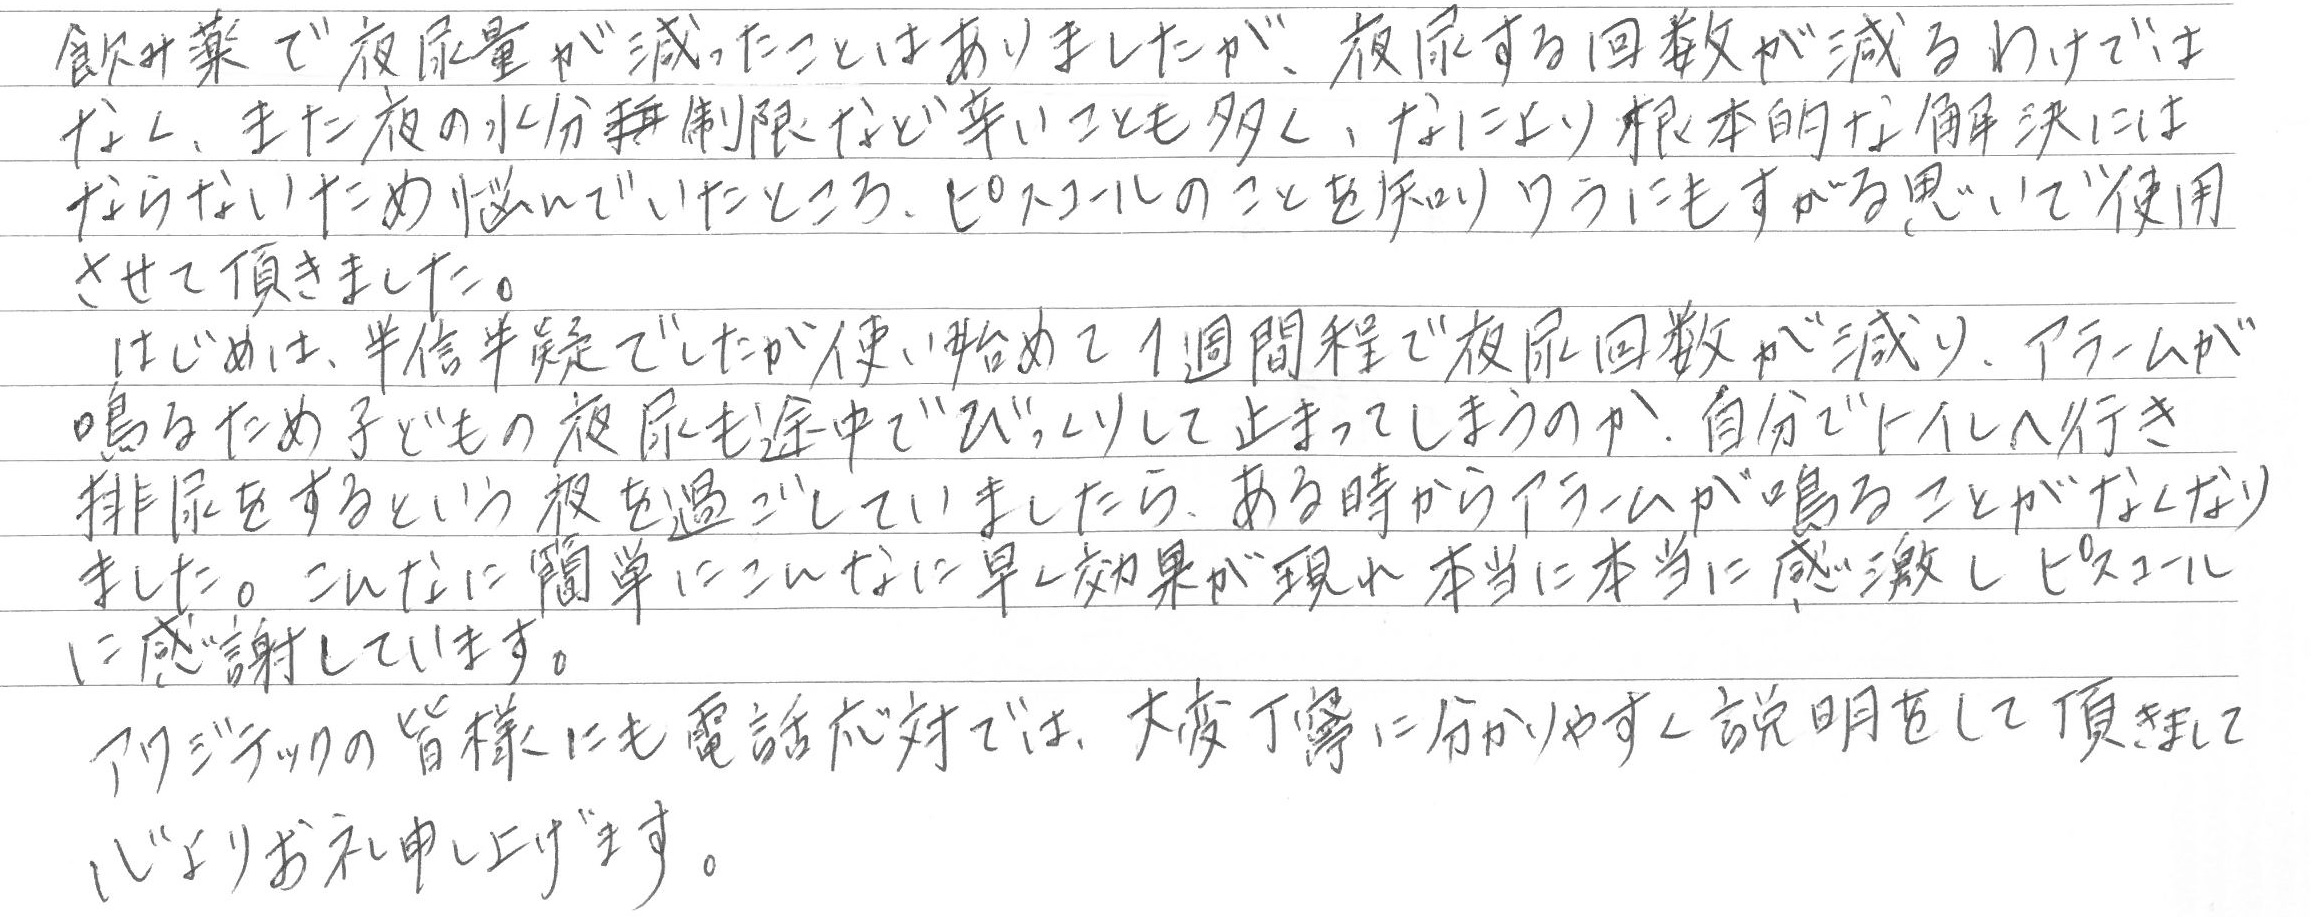 飲み薬で夜尿量が減ったことはありましたが、夜尿する回数が減るわけでは
なく、また夜の水分制限など辛いことも多く、なにより根本的な解決には
ならないため悩んでいたところ、ピスコールのことを知りワラにもすがる思いで使用
させて頂きました。
はじめは、半信半疑でしたが使い始めて1週間程で夜尿回数が減り、アラームが
鳴るため子どもの夜尿も途中でびっくりして止まってしまうのか、自分でトイレへ行き
排尿をするという夜を過ごしていましたら、ある時からアラームが鳴ることがなくなり
ました。こんなに簡単にこんなに早く効果が現れ本当に本当に感激しピスコール
に感謝しています。
アワジテックの皆様にも電話応対では、大変丁寧に分かりやすく説明をして頂きまして
心よりお礼申し上げます。